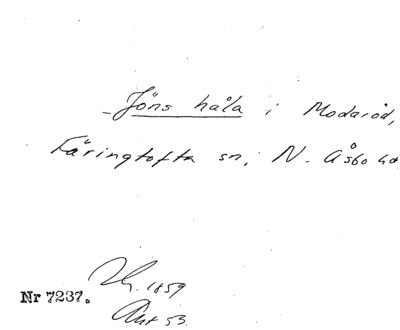 Jöns håla i Modaröd,
Färingtofta sn, N. Åsbo hd
Nr 7237. 1859
53